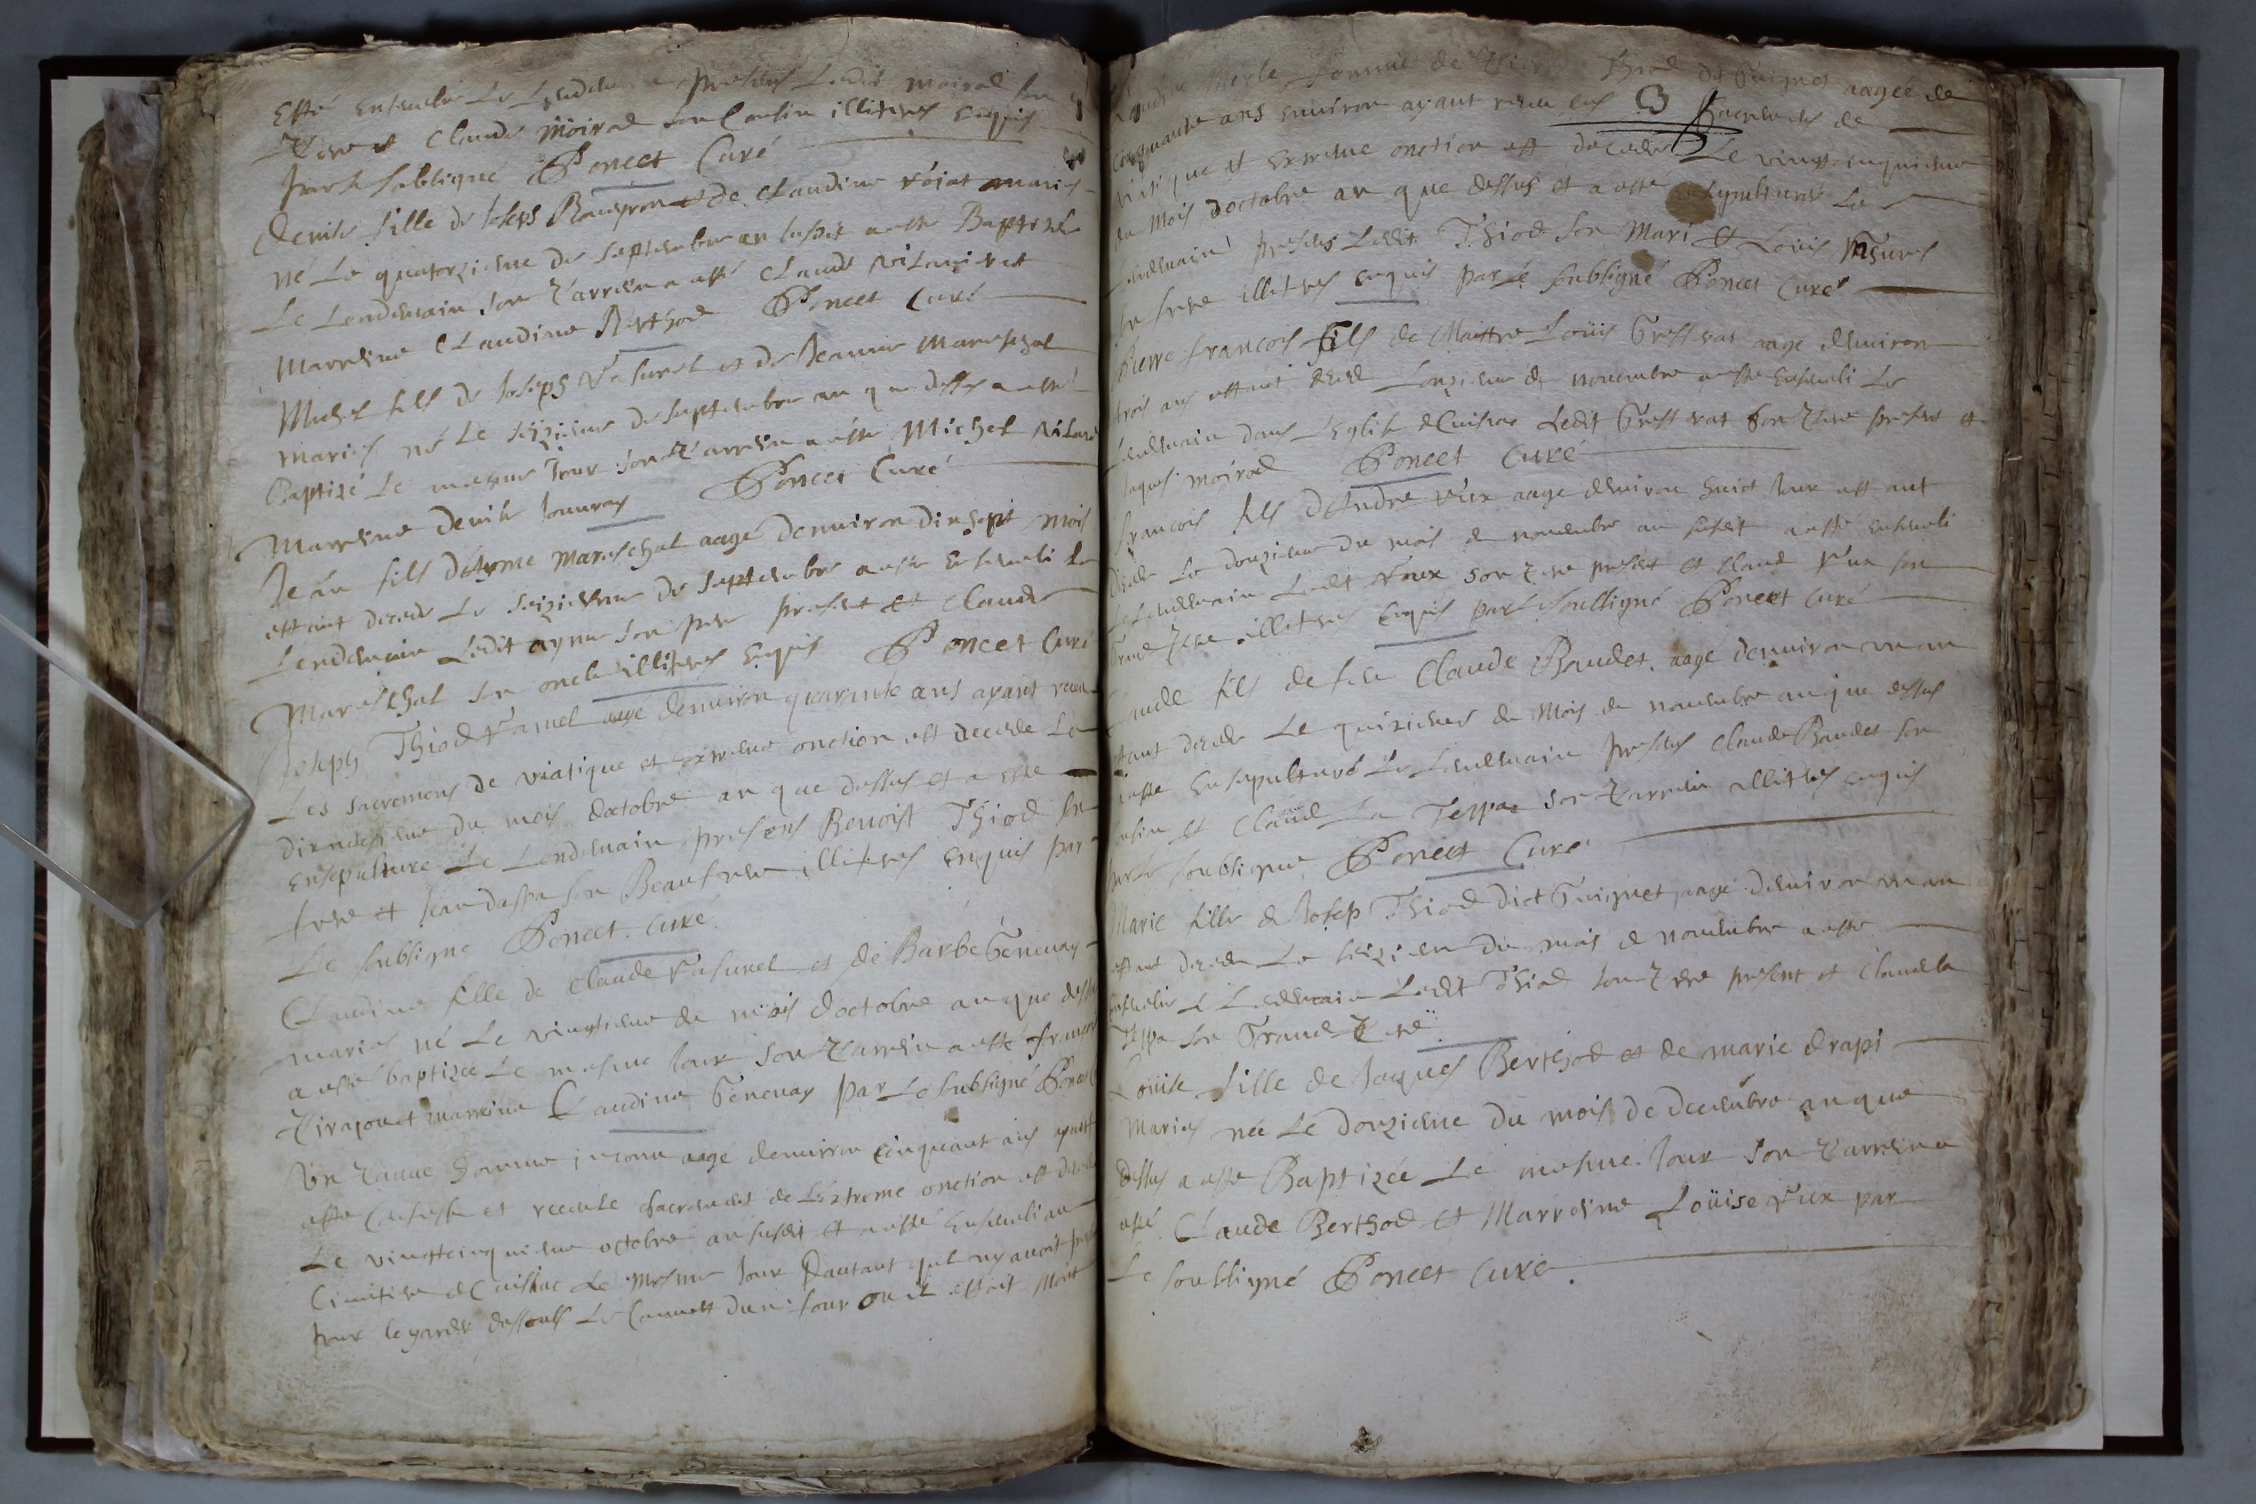 Esté ensevelie le lendemain presens Ledit moirod son
pere et Claude moirod son Cousin illiteres enquis
par le soubsigné Poncet Curé
Denise fille de Joseph et de Claudine maries
né Le quatorzieme de septembre an susdit a esté Baptizée
Le Lendemain son parrein a esté Claude
Marreine Claudine Berthod Poncet Curé
Michel fils de Joseph Vasurel et de Jeanne Mareschal
maries né Le seizieme de septembre an que dessus a esté
Baptizé Le mesme Jour son parrein a esté Michel
Marreine Denise Jouvray Poncet Curé
Jean fils d'Ayme Mareschal aagé denviron dix sept mois
estant decede Le seizieme de septembre a esté Enseveli le
Lendemain Ledit ayme son pere present et Claude
Mareschal son oncle illiteres enquis Poncet Curé
Joseph Thiod aagé denviron quarante ans ayant receu
Les sacremens de viatique et extreme onction est decede Le
du mois doctobre an que dessus et a esté
ensepulturé Le Lendemain presens Benoist Thiod son
frere et Jean son Beaufrere illiteres enquis par
Le soubsigné Poncet Curé
Claudine fille de Claude Vasurel et de Barbe Genevay
maries né Le vingtieme de mois doctobre an que dessus
a esté baptizée Le mesme Jour son parrein a esté
et marreine Claudine Genevay par Le subsigné Poncet
Un pauvre homme inconu aagé denviron cinquant ans ayant
esté confessé et receu le sacrement de L'extreme onction est decede
Le vingtcinquieme octobre an susdit et a esté enseveli au
Cimitiere de Cuisiac Le mesme Jour dautant quil ny avoit
pour le garder dessous Le dun four ou il estoit Mort
Claudine Merle femme de Thiod dit Guignet aagée de
cinquante ans environ ayant receu les Sacremens de
viatique et extreme onction est decedee Le vingt cinquieme
du mois doctobre an que dessus et a esté ensepulturée Le
Lendemain presens Ledit Thiod son Mari et Louis
son frere illiteres enquis par le soubsigné Poncet Curé
Pierre francois fils de Maittre Louis aagé denviron
trois ans estant decede Lonzieme de novembre a esté enseveli Le
Lendemain dans L'Eglise de Cuisiac Ledit son pere present et
Jaques moirod Poncet Curé
francois fils d'Andre Vux aage denviron huict Jour estant
decede Le douzieme du mois de novembre an susdit a esté enseveli
Le Lendemain Ledit Vux son pere present et Claude Vux son
Grand Pere illiteres enquis par le soussigné Poncet Curé
Claude fils de feu Claude Baudet aage denviron un an
estant decede Le quinzieme du Mois de novembre an que dessus
a esté Ensepulturé Le Lendemain presens Claude Baudet son
cousin et Claude La Teppe son parrein illiteres enquis
par le soubsigné Poncet Curé
Marie fille de Josep Thiod dict Guignet aagé denviron un an
estant decede Le seizieme du mois de novembre a esté
ensevelie Le Lendemain Ledit Thiod son pere present et Claude la
Teppe son Grand Pere
Louise fille de Jaques Berthod et de marie drapi
Maries née Le douzieme du mois de decembre an que
dessus a esté Baptizée Le mesme Jour son parrein a
esté Claude Berthod et Marreine Louise Vux par
Le soubsigné Poncet Curé